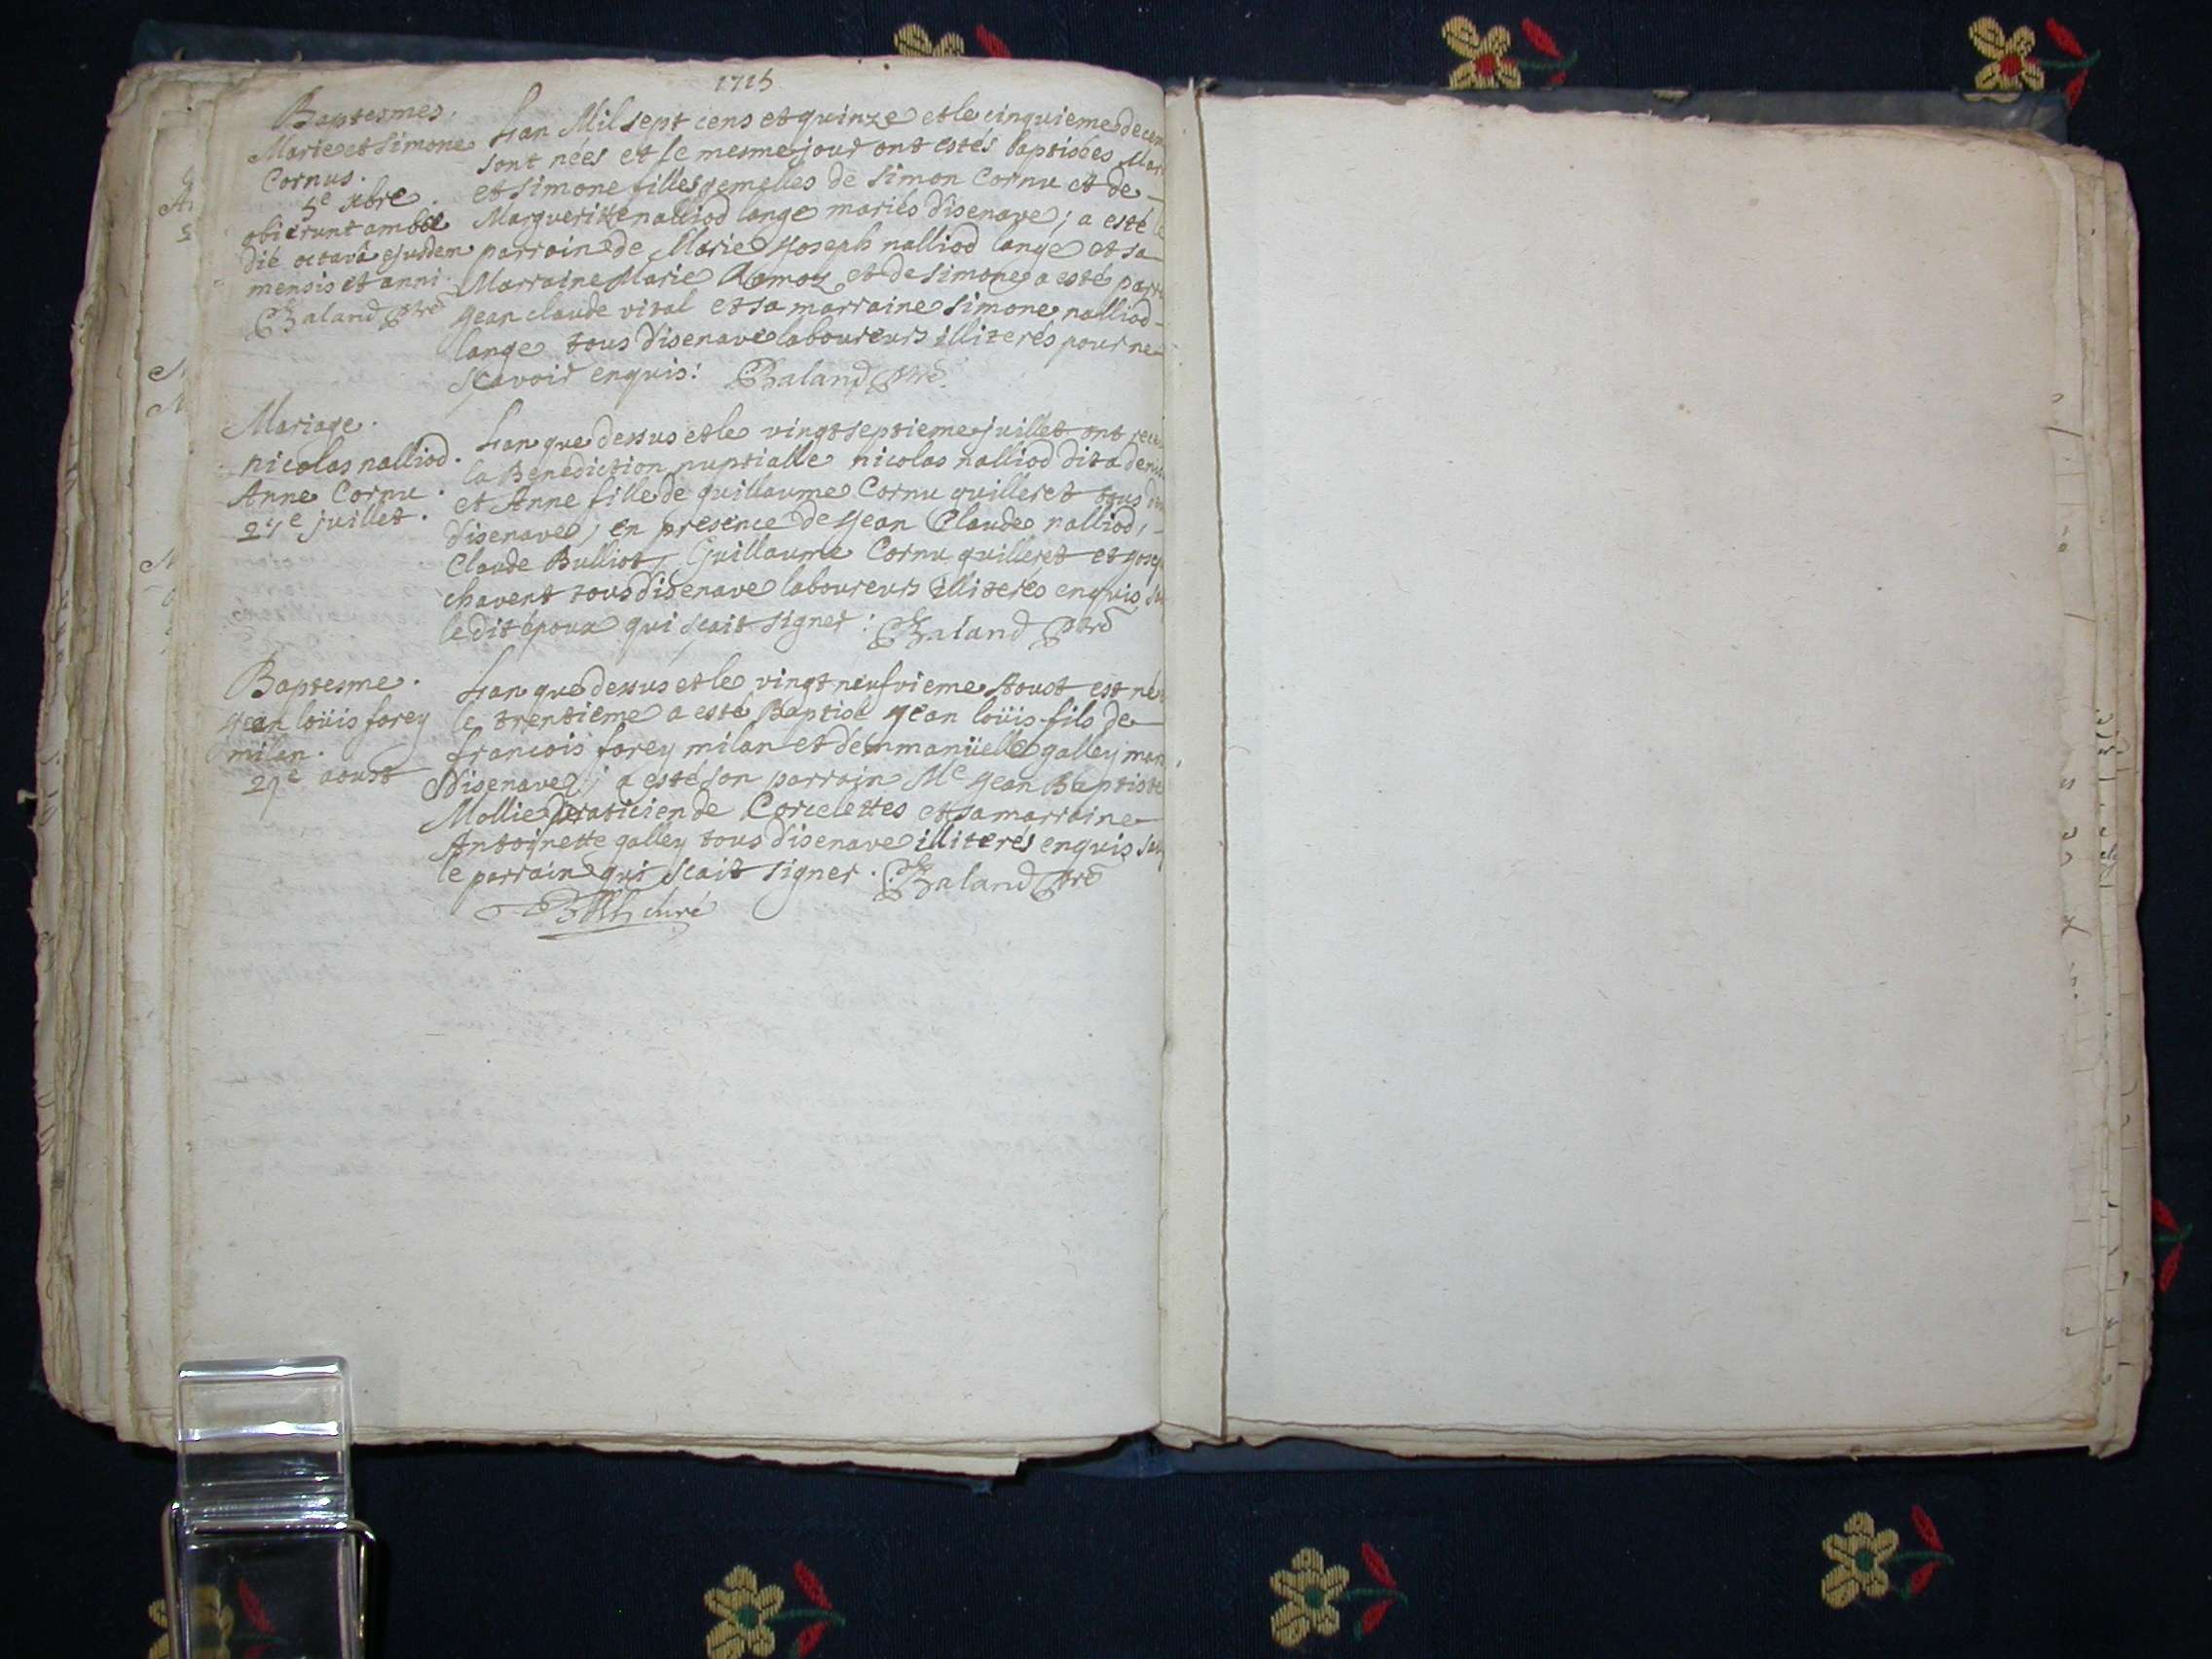 1715
Baptesmes.
Marie et Simone
Cornus.
5e xbre.
obierunt ambae
die octavâ ejusdem
mensis et anni
Chaland ptre
Lan Mil sept cens et quinze et le cinquieme decem
sont nées et le mesme jour ont estés baptisées Mar
et Simone filles gemelles de Simon Cornu et de
Margueritte nalliod lange mariés disenave; a esté le
parrain de Marie Joseph nalliod lange et sa
Marraine Marie Ramoz et de Simone a esté parr
jean claude vital et sa marraine Simone nalliod
lange tous disenave laboureurs illiterés pour ne
scavoir enquis: Chaland ptre
Mariage.
nicolas nalliod.
Anne Cornu.
27e juillet.
Lan que dessus et le vingt septieme juillet ont receu
la Benediction nuptialle nicolas nalliod dit a
et Anne fille de guillaume Cornu guilleret tous
disenave; en presence de jean Claude nalliod,
Claude Bulliot, Guillaume Cornu guilleret et josep
chavent tous disenave laboureurs illiterés enquis
ledit époux qui scait signer: Chaland ptre
Baptesme.
jean loüis forey
milan.
29e aoust
Lan que dessus et le vingt neufvieme Aoust est né
le trentieme a esté Baptisé jean loüis fils de
francois forey milan et demmanüelle galley mar
disenave; a esté son parrain Me jean Baptiste
Mollie praticien de Corcelettes et sa marraine
Antoinette galley tous disenave illiterés enquis
le parrain qui scait signer. Chaland ptre
curé